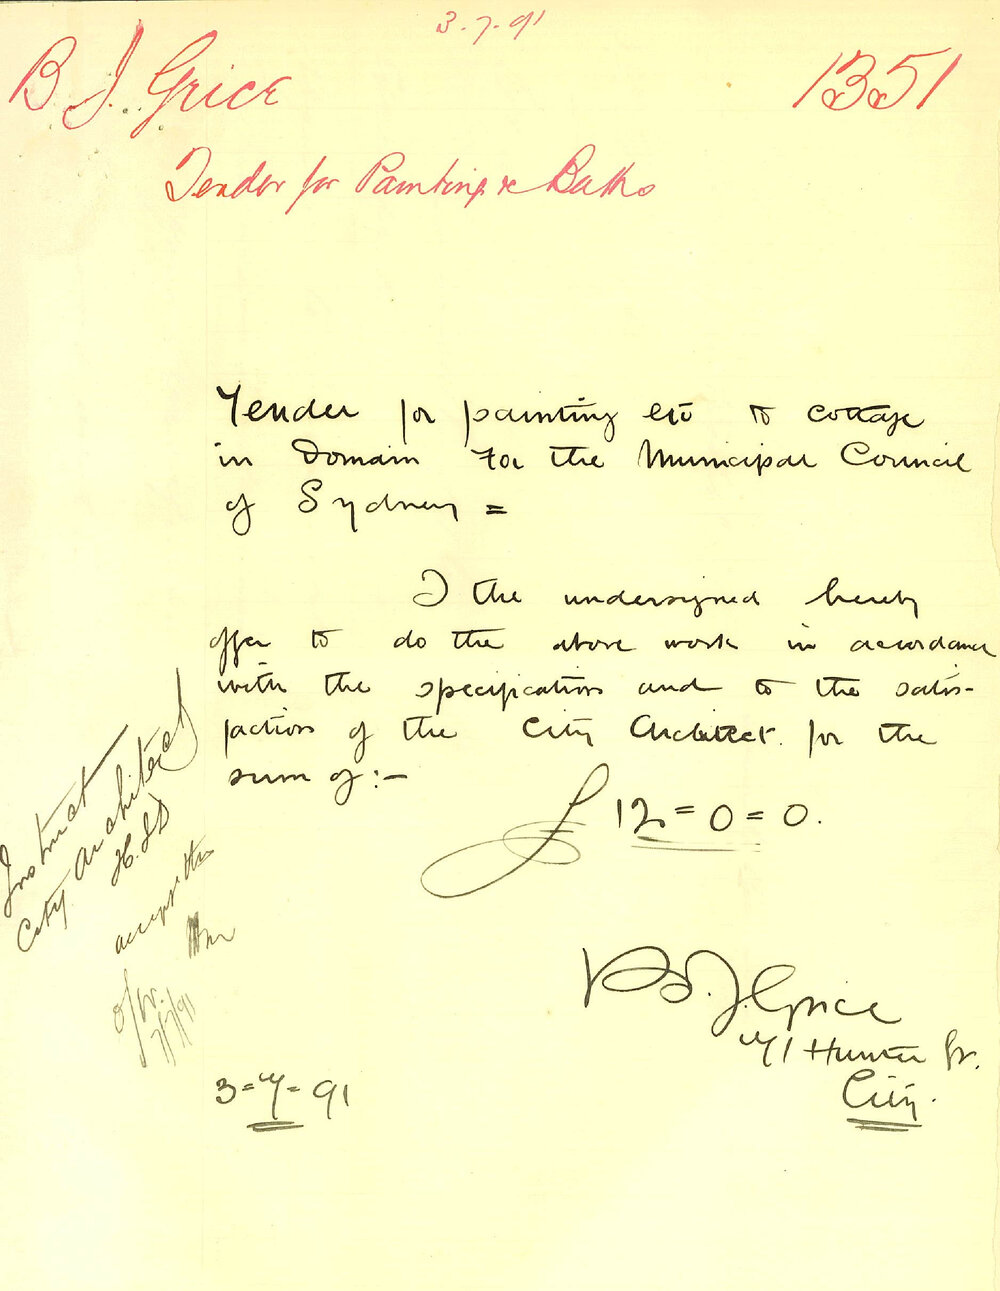 3.7.91
B J. Grice
1351
Tender for Painting &c Baths
Tender for painting etc to cottage
in Domain for the Municipal Council
of Sydney =
I the undersigned hereby
offer to do the above work in accordance
with the specification and to the satis-
faction of the City Architect. for the
sum of :-
£ 12 = 0 = 0.
Instruct
City Architect
accept this
7/7/91
B. J. Grice
71 Hunter St.
City.
3=7=91